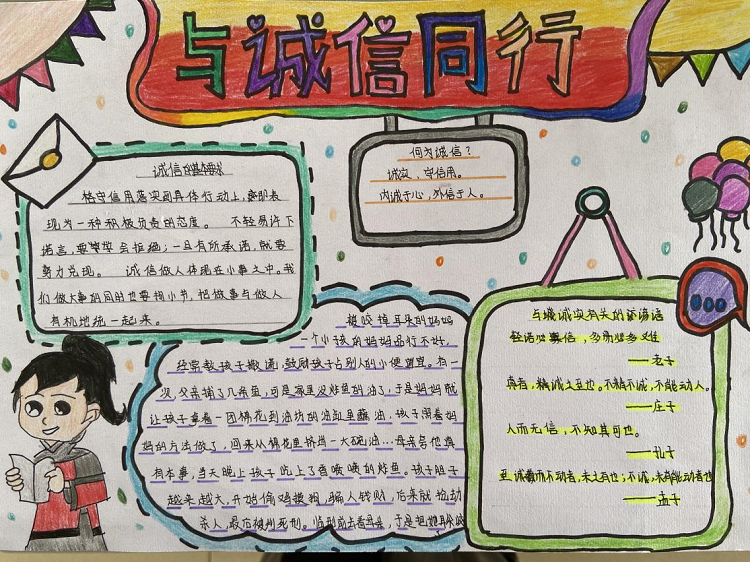 与诚信同行
诚信的基本要求
恪守信用落实到具体行动上,亦即表
现为一种积极负责的态度。 不轻易许下
诺言,要学会拒绝;一旦有所承诺,就要
努力兑现。 诚信做人体现在小事之中。我
们做大事的同时也要拘小节,把做事与做人
有机地统一起来。
何为诚信?
诚实、守信用。
内诚于心,外信于人。
被咬掉耳朵的妈妈
一个小孩的妈妈品行不好,
经常教孩子撒谎,鼓励孩子占别人的小便宜。有一
次,父亲捕了几条鱼,可是家里没炸鱼的油了,于是妈妈就
让孩子拿着一团棉花到油坊的油缸里蘸油,孩子照着妈
妈的方法做了,回来从棉花里挤出一大碗油…母亲夸他真
有本事,当天晚上孩子吃上了香喷喷的炸鱼。孩子胆子
越来越大,开始偷鸡摸狗,骗人钱财,后来就抢劫
杀人,最后被判死刑。临刑前去看母亲,于是把她耳朵咬
与诚实有关的谚语
轻诺必寡信,多易必多难
——老子
真者,精诚之至也。不精不诚,不能动人。
——庄子
人而无信,不知其可也。
——孔子
至诚而不动者,未之有也;不诚,未有能动者也
——孟子